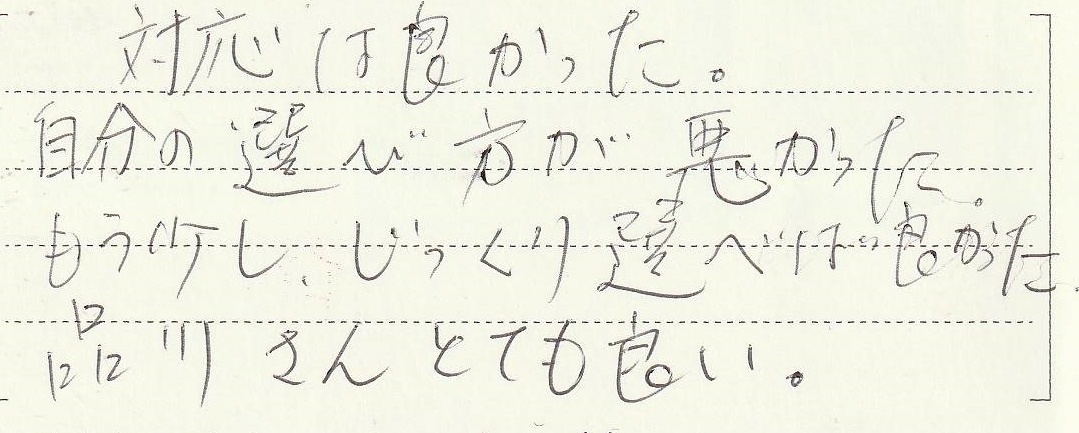 対応は良かった。
自分の選び方が悪かった。
もう少し、じっくり選べば良かった
品川さんとても良い。